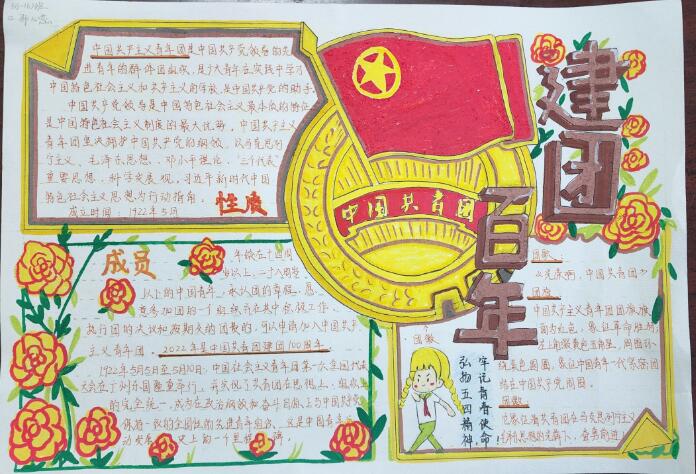 中国共产主义青年团是中国共产党领导的先
进青年的群件团组织，是广大青年在实践中学习
中国特色社会主义和共产主义的学校，是中国共产党的助手
中国共产党领导是中国特色社会主义最本质的特征
是中国特色社会主义制度的最大优势。中国共产主义
青年团坚决拥护中国共产党的纲领，以马克思列
宁主义、毛泽东思想、邓小平理论、“三个代表”
重要思想、科学发展观、习近平新时代中国
特色社会主义思想为行动指南。
成立时间：1922年5月
性质
中国共青团
建团
百年
成员
年龄在十四周
岁以上，二十八周岁
以下的中国青年，承认团的章程，愿
意参加团的一个组织并在其中积极工作、
执行团的决议和按期交纳团费的，可以申请加入中国共产
主义青年团。2022年是中国共青团建团100周年
1922年5月5日至5月10日，中国社会主义青年团第一次全国代表
大会在广州东园隆重举行
的完全统一，成为在政治纲领和奋斗目标上与中国共产党
保持一致的全国性的先进青年组织，这是中国青年
动发展史上的一个里程碑
团徽
牢记青春使命
弘扬五四精神
团歌：
《光荣啊，中国共青团》
团旗
中国共产主义青年团团旗旗
面为红色，象征革命胜利
左上角缀黄色五角星，周围环
绕黄色圆圈，象征中国青年一代紧密团
结在中国共产党周围。
团徽：